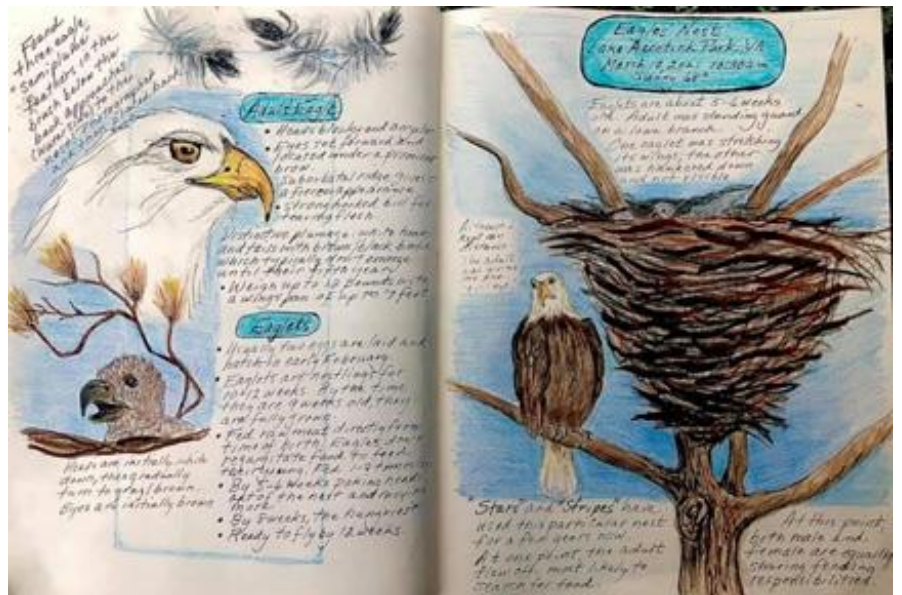 Found
three eagle
semiplume
feathers in the
brush below the
back
and then placed back
Adult Eagle
• Heads blocky and angular
• Eyes set forward and
located under a prominent
brow.
Suborbital ridge gives
a fierce appearance
• strong hooked bill for
tearing flesh
Distinctive plumage, white head
and tails with brown/black body
which typically don't emerge
until their fifth year
• Weigh up to 12 pounds with
a wingspan of up to 7 feet
Eaglets
• Usually two eggs are laid and
hatch in early February.
• Eaglets are nestlings for
10-12 weeks. By the time
they are 9 weeks old, they
are fully grown.
• Fed raw meat directly from
time of birth. Eagles don't
regurgitate food to feed
their young. Fed
• By 5-6 weeks
out of the nest and
more
• By 8 weeks, the
• Ready to fly by 12 weeks.
Heads are initially white
down, then gradually
turn to gray/brown.
Eyes are initially brown
Eagles Nest
Lake Accotink Park, VA
March 10:30am
Sunny 68°
Eaglets are about 5-6 weeks
old. Adult was standing guard
on a lower branch.
One eaglet was stretching
its wings, the other
was hunkered down
and not visible
The adult
"Stars" and "Stripes" have
used this particular nest
for a few years now
At one point, the adult
flew off, most likely to
search for food.
At this point,
both male and
female are equally
sharing feeding
responsibilities.